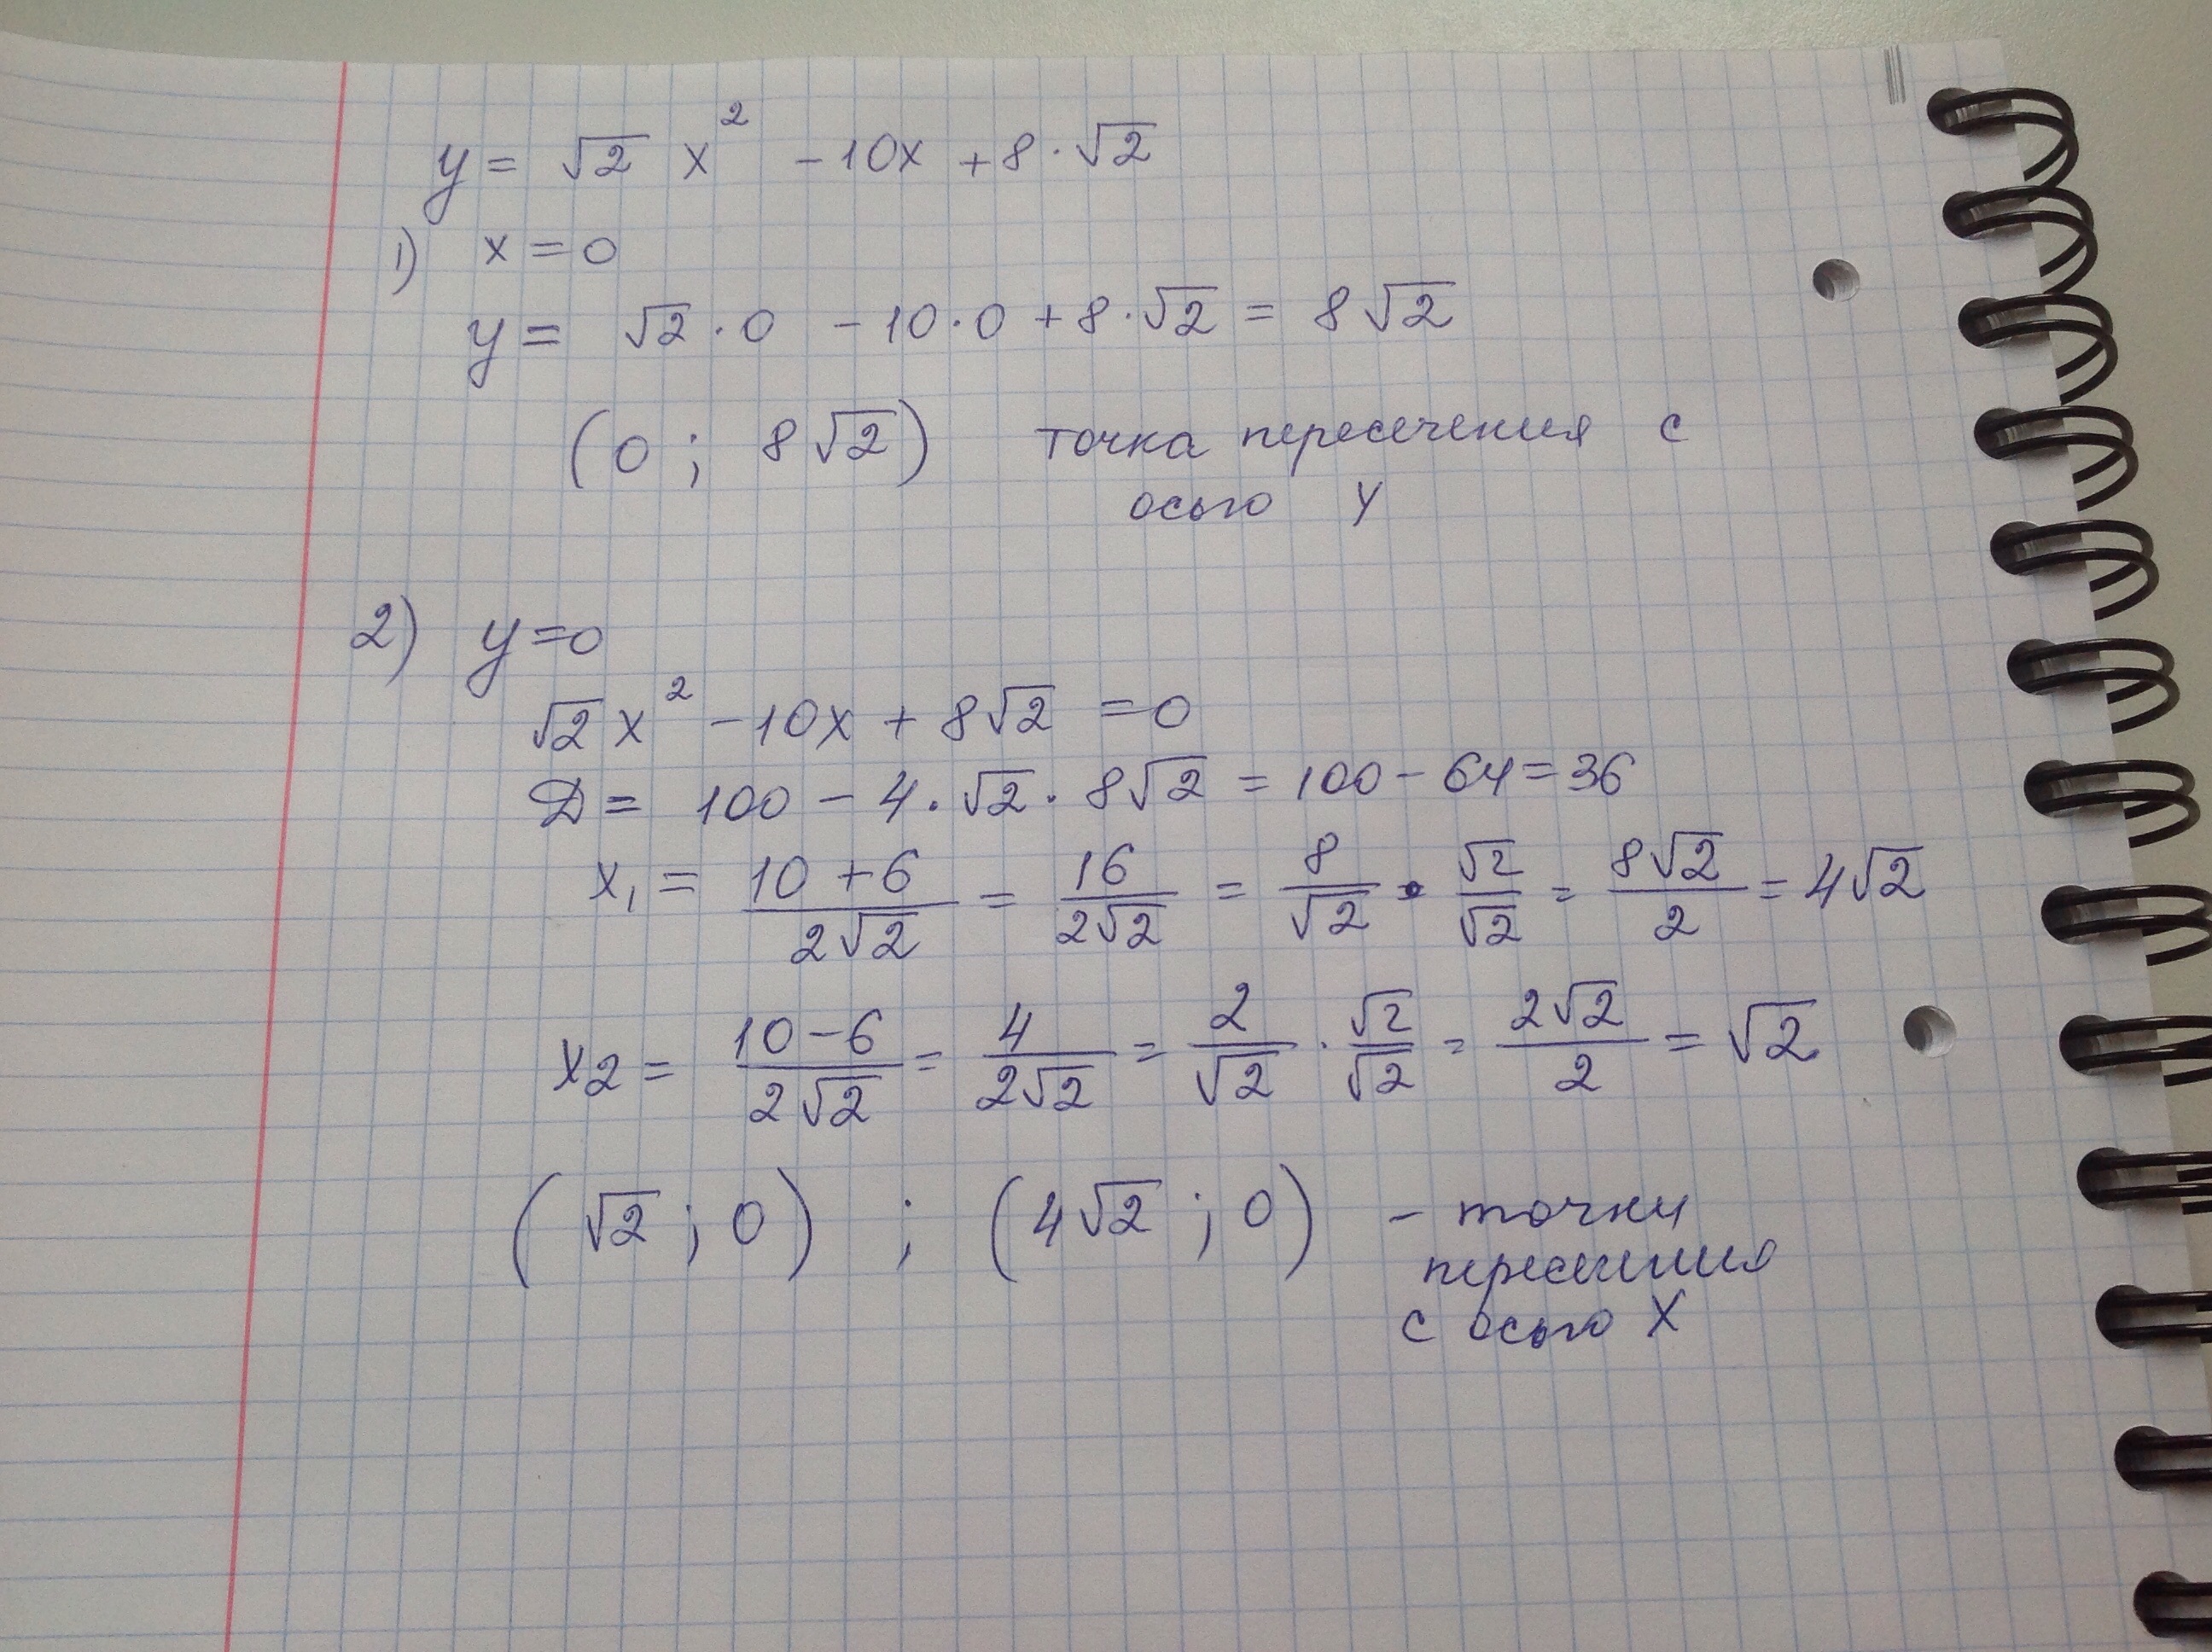 y = √2 x² - 10x + 8·√2
1) x = 0
y = √2·0 - 10·0 + 8·√2 = 8√2
(0 ; 8√2) точка пересечения с
осью y
2) y=0
√2x² - 10x + 8√2 = 0
D = 100 - 4·√2·8√2 = 100 - 64 = 36
x₁ = (10+6)/(2√2) = 16/(2√2) = 8/√2 · √2/√2 = 8√2/2 = 4√2
x₂ = (10-6)/(2√2) = 4/(2√2) = 2/√2 · √2/√2 = 2√2/2 = √2
(√2 ; 0) ; (4√2 ; 0) - точки
пересечения
с осью X